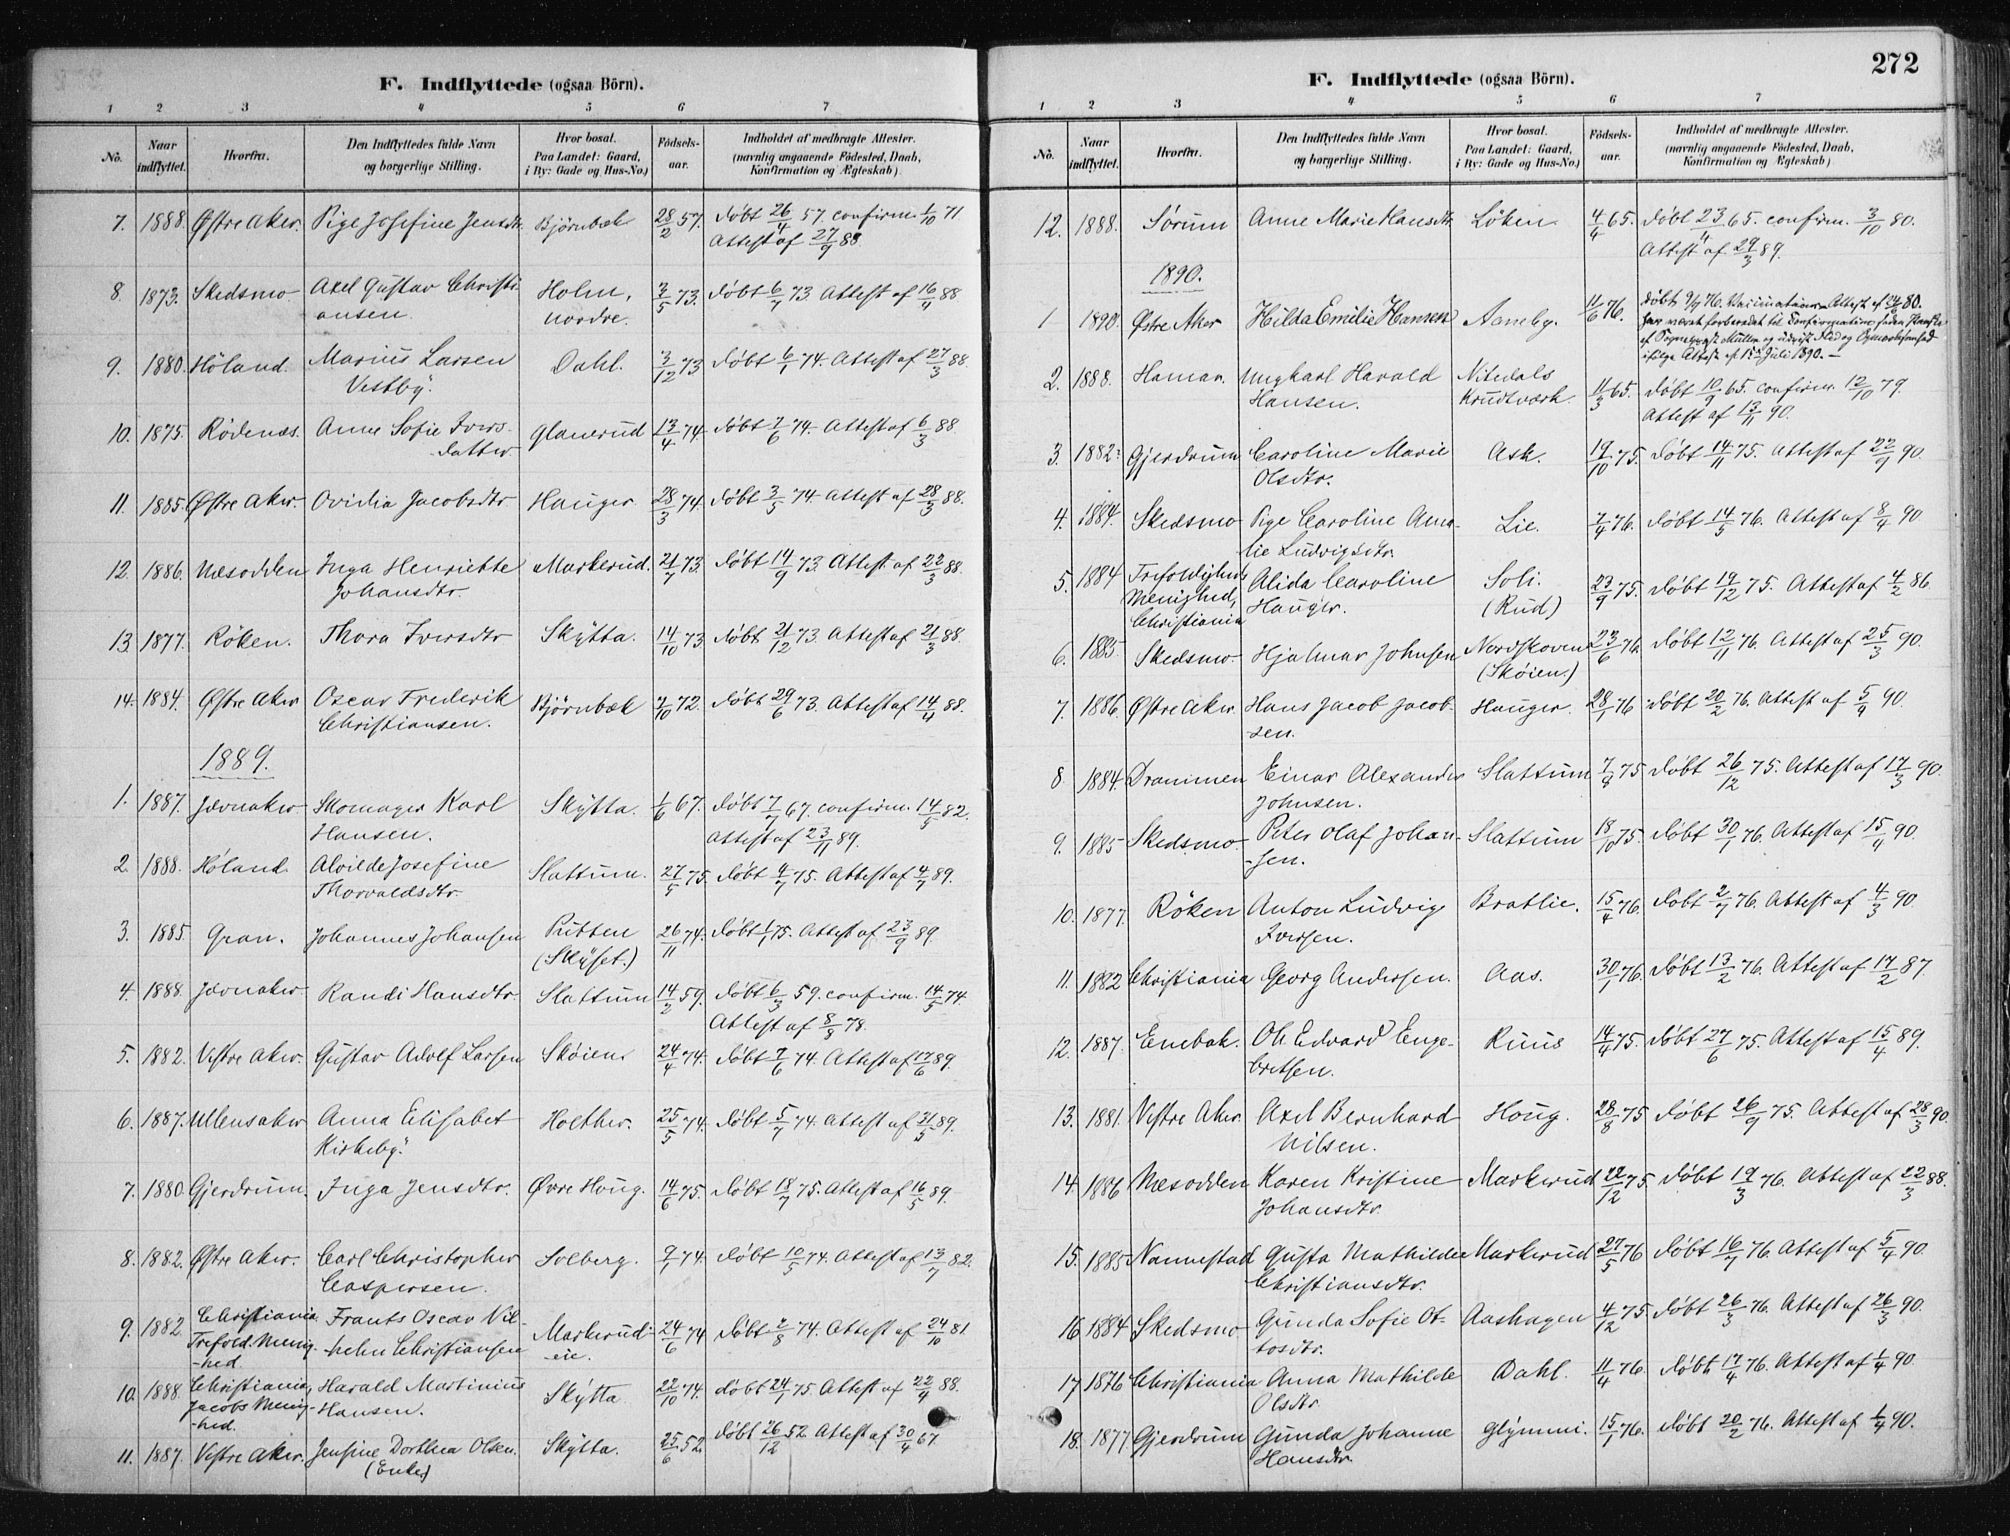 F. Indflyttede (ogsaa Börn).
1 2 3 4 5 6 7
No. Naar indflyttet. Hvorfra. Den Indflyttedes fulde Navn og borgerlige Stilling. Hvor bosat. Paa Landet: Gaard, i By: Gade og Hus-No.) Födsels-aar. Indholdet af medbragte Attester. (navnlig angaaende Födested, Daab, Konfirmation og Ægteskab)
7. 1888. Østre Aker. Pige Josefine Jensdtr. Bjørnbæk 28/2 57. døbt 26/4 57. confirm. 1/10 71
Attest af 27/9 88.
8. 1873. Skedsmo Axel Gustav Christi-
ansen. Holm, nordre. 3/5 73. døbt 6/7 73. Attest af 16/4 88
9. 1880. Höland. Marius Larsen
Vestby. Dahl. 3/12 73 døbt 6/1 74. Attest af 27/3 88.
10. 1875. Rödenæs. Anne Sofie Ivers-
datter. Glanerud 13/4 74. døbt 7/6 74. Attest af 6/3 88.
11. 1885. Østre Aker. Ovidia Jacobsdtr Hauger. 28/3 74. døbt 3/5 74. Attest af 28/3 88.
12. 1886. Næsodden Inga Henriette
Johansdtr. Markerud. 21/7 73. døbt 14/9 73. Attest af 22/3 88.
13. 1877. Röken. Thora Iversdtr Skÿtta. 14/10 73. døbt 21/12 73. Attest af 21/3 88.
14. 1884. Østre Aker Oscar Frederik
Christiansen. Bjørnbæk 7/10 72. døbt 29/6 73. Attest af 14/4 88.
1889.
1. 1887. Jævnaker. Skomager Karl
Hansen. Skÿtta. 1/6 67. døbt 7/7 67. confirm. 14/5 82.
Attest af 23/11 89.
2. 1888. Høland. Alvilde Josefine
Thorvaldsdtr. Slattum. 27/5 75. døbt 4/7 75. Attest af 4/7 89.
3. 1885. Gran. Johannes Johansen Putten
(Skÿset.) 26/11 74. døbt 1/1 75. Attest af 23/9 89
4. 1888. Jævnaker. Randi Hansdtr Slattum 14/2 59. døbt 6/3 59. confirm. 14/5 74.
Attest af 8/8 78.
5. 1882. Vestre Aker. Gustav Adolf Larsen Skøien 24/4 74. døbt 7/6 74. Attest af 17/6 89.
6. 1887. Ullensaker Anna Elisabet
Kirkeby. Holther. 25/5 74. døbt 5/7 74. Attest af 21/5 89.
7. 1880. Gjerdrum. Inga Jensdtr. Øvre Houg. 14/6 75. døbt 18/7 75. Attest af 16/5 89.
8. 1882. Østre Aker. Carl Christopher
Caspersen. Solberg. 9/1 74. døbt 10/5 74. Attest af 13/7 82.
9. 1882. Christiania
Trefold. Menig-
hed. Frants Oscar Vil-
helm Christiansen Markerud-
eie. 24/6 74 døbt 2/8 74. Attest af 24/10 81.
10. 1888. Christiania,
Jacobs Menig-
hed. Harald Martinius
Hansen. Skÿtta 22/10 74. døbt 24/1 75. Attest af 22/4 88.
11. 1887. Vestre Aker. Jensine Dorthea Olsen.
(Enke) Skÿtta. 25/6 52. døbt 26/12 52. Attest af 30/4 67.
F. Indflyttede (ogsaa Börn). 272
1 2 3 4 5 6 7
No. Naar indflyttet. Hvorfra. Den Indflyttedes fulde Navn og borgerlige Stilling. Hvor bosat. Paa Landet: Gaard, i By: Gade og Hus-No.) Födsels-aar. Indholdet af medbragte Attester. (navnlig angaaende Födested, Daab, Konfirmation og Ægteskab)
12. 1888. Sørum Anne Marie Hansdtr. Løken. 4/4 65. døbt 23/4 65. confirm. 3/10 80.
Attest af 29/3 89.
1890.
1 1890. Østre Aker Hilda Emilie Hansen Aaneby. 11/6 76. døbt 9/9 76. Vaccinations-Attest af 24/6 80.
har været forberedet til Confirmation
ifølge Attest af 15de Juli 1890.
2. 1888. Hamar. Ungkarl Harald
Hansen. Nitedals
Krudtværk. 11/3 65. døbt 10/9 65. confirm. 12/10 79.
Attest af 13/11 90.
3. 1882. Gjerdrum Caroline Marie
Olsdtr. Ask. 19/10 75. døbt 14/11 75. Attest af 22/9 90.
4. 1884. Skedsmo Pige Caroline Ama-
lie Ludvigsdtr. Lie. 7/4 76. døbt 14/5 76. Attest af 8/4 90
5. 1884 Trefoldigheds
Menighed,
Christiania Alida Caroline
Hauger. Soli.
(Rud) 23/9 75. døbt 19/12 75. Attest af 4/2 86
6. 1885. Skedsmo. Hjalmar Johnsen Nordskoven
(Skøien) 23/6 76. døbt 12/11 76. Attest af 25/3 90.
7. 1886. Østre Aker. Hans Jacob Jacob-
sen. Hauger. 28/1 76 døbt 20/2 76. Attest af 5/4 90.
8 1884. Drammen Einar Alexander
Johnsen. Slattum 7/8 75 døbt 26/12 75. Attest af 17/3 90.
9. 1885 Skedsmo Peter Olaf Johan-
sen. Slattum 18/10 75. døbt 30/1 76. Attest af 15/4 90.
10. 1877. Röken Anton Ludvig
Iversen. Bratlie. 15/4 76. døbt 2/7 76. Attest af 4/3 90
11. 1882 Christiania Georg Andersen. Aas. 30/1 76. døbt 13/2 76. Attest af 17/2 87
12. 1887. Enebak. Ole Edvard Enge-
bretsen. Ruus 14/4 75. døbt 27/6 75. Attest af 15/4 89.
13. 1881. Vestre Aker. Axel Bernhard
Nilsen. Houg. 28/8 75. døbt 26/9 75. Attest af 28/3 90.
14. 1886 Næsodden Karen Kristine
Johansdtr. Markerud 22/12 75. døbt 19/3 76. Attest af 22/3 88.
15. 1885 Nannestad Gusta Mathilde
Christiansdtr. Markerud 27/5 76 døbt 16/7 76. Attest af 5/4 90.
16 1884 Skedsmo Gunda Sofie Ot-
tosdtr. Aashagen 4/12 75. døbt 26/3 76. Attest af 26/3 90.
17 1876 Christiania Anna Mathilde
Olsdtr. Dahl. 11/4 76. døbt 17/4 76. Attest af 1/4 90.
18. 1877 Gjerdrum Gunda Johanne
Hansdtr. Glÿmmi. 15/1 76. døbt 20/2 76. Attest af 1/4 90.